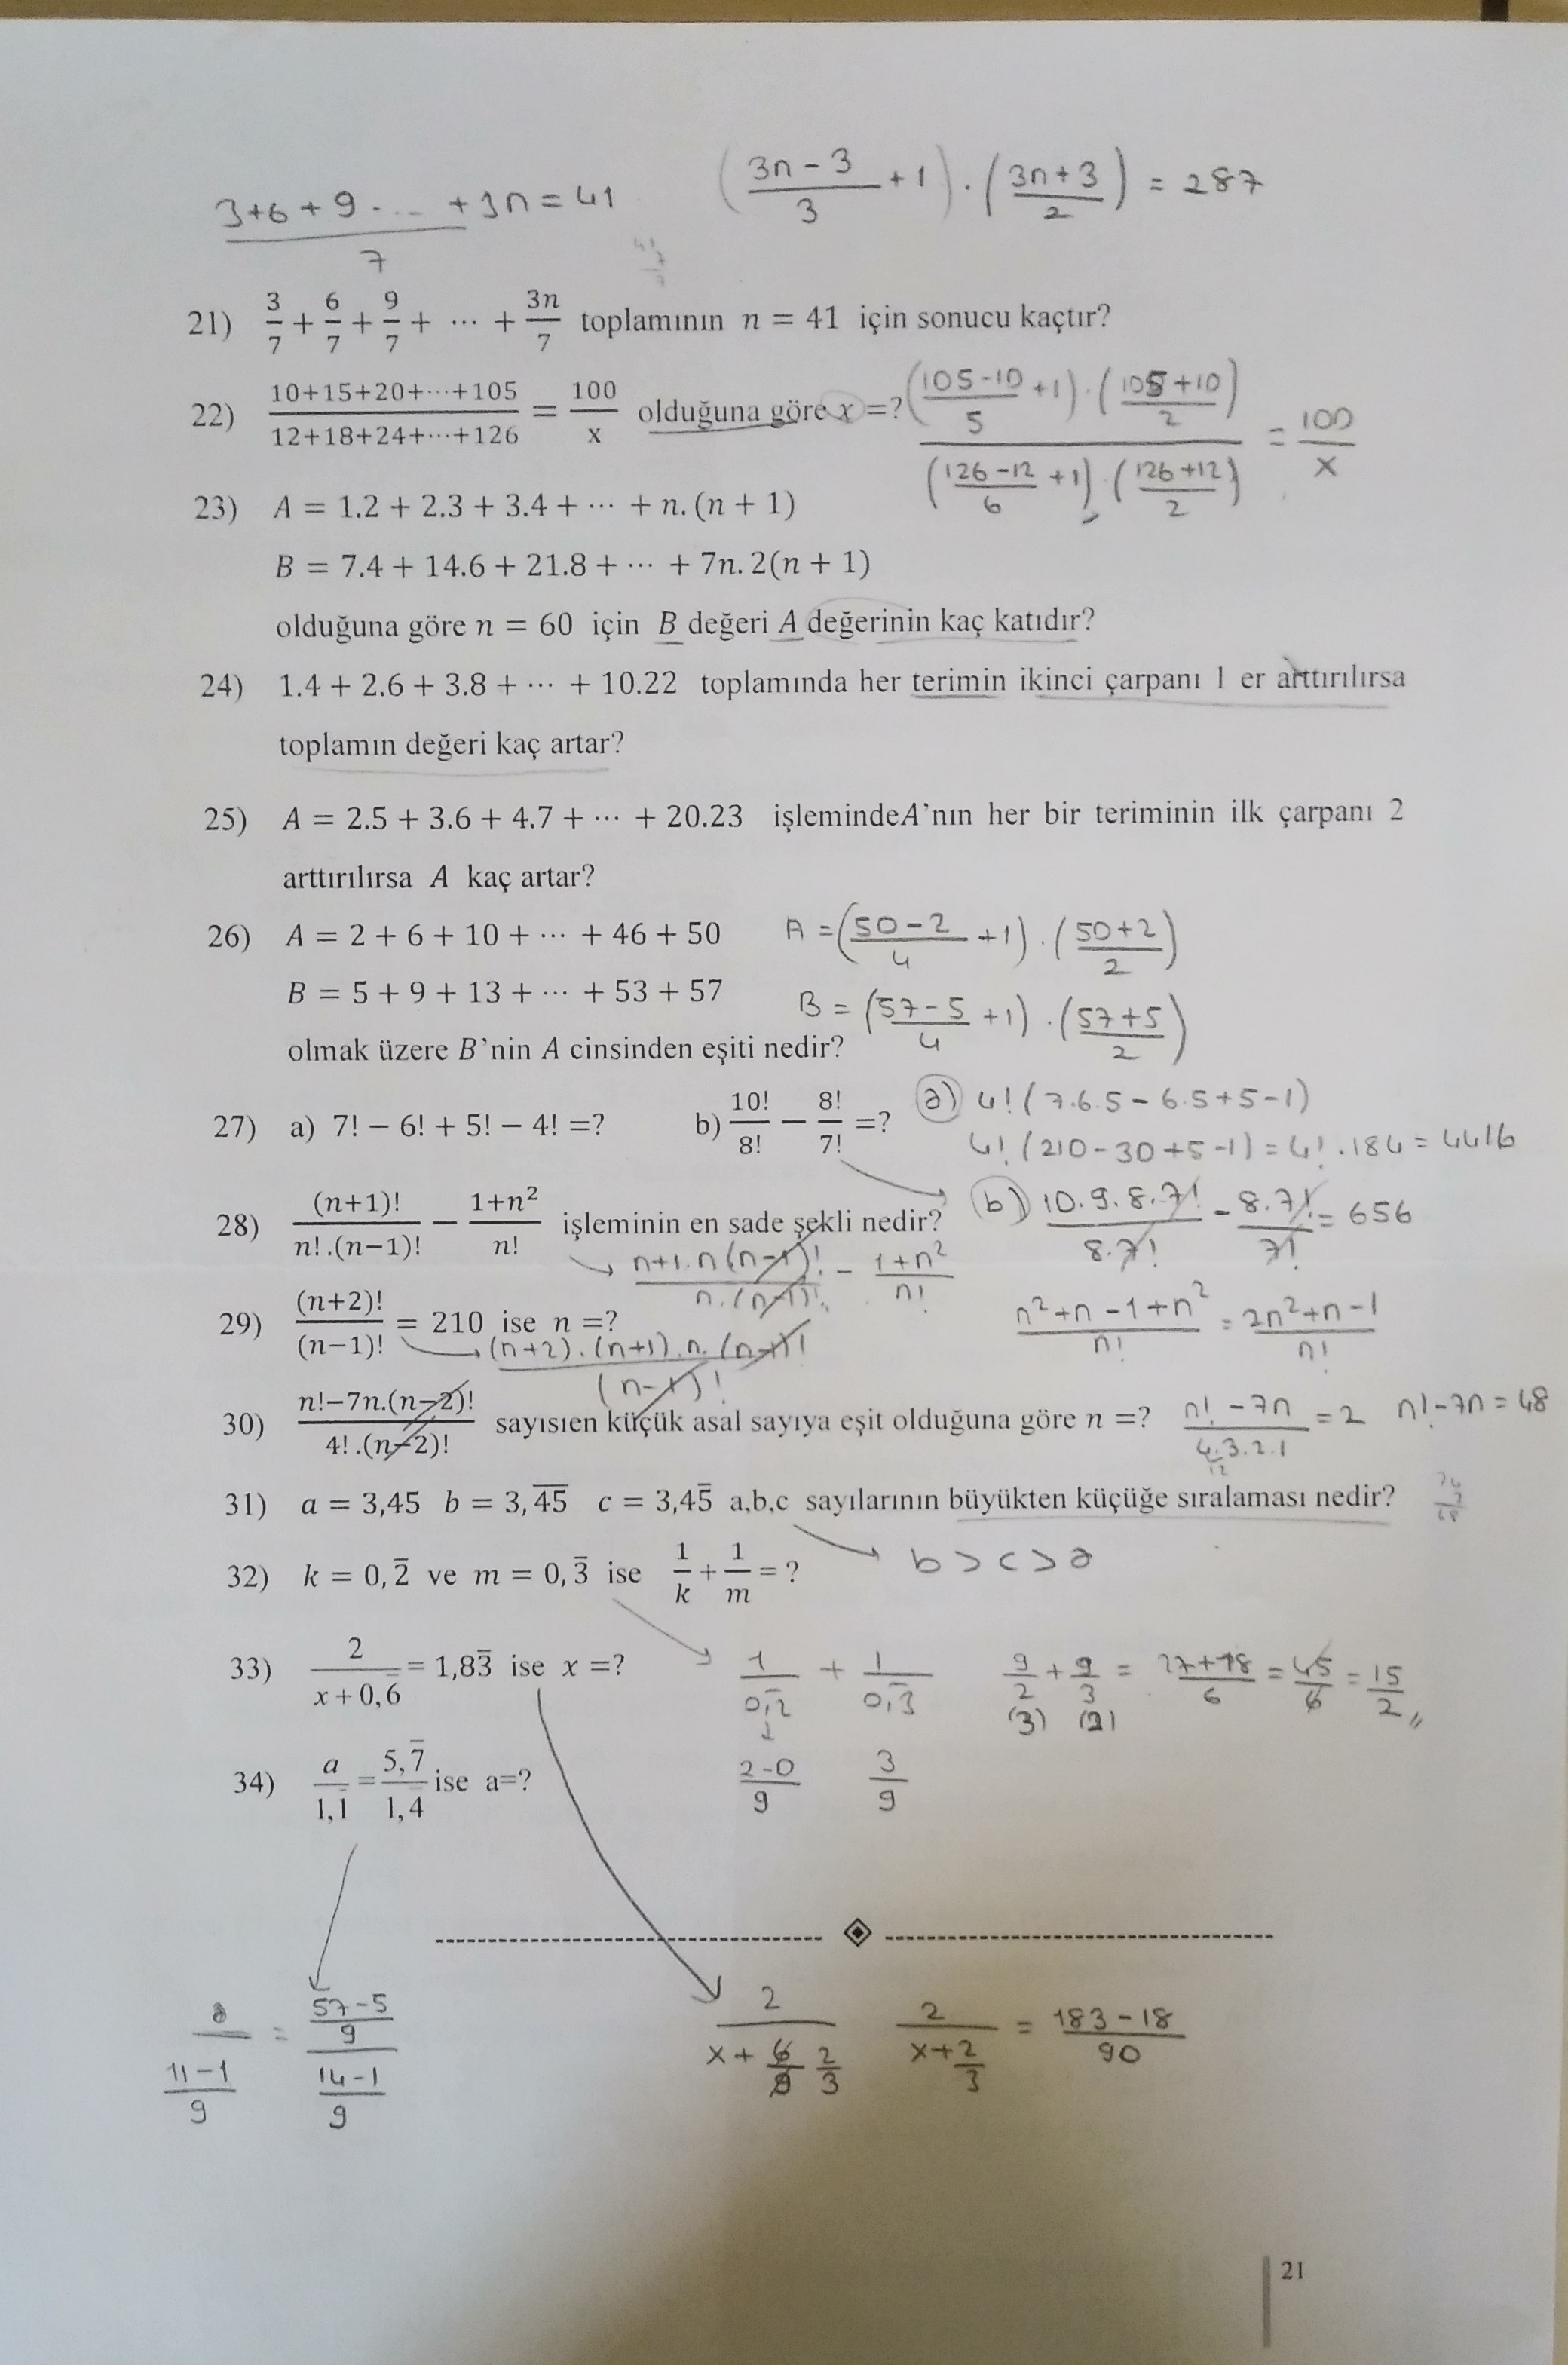 3+6+9 ... +3n = 41
7
(3n-3/3 + 1) . (3n+3/2) = 287
21) 3/7 + 6/7 + 9/7 + ⋯ + 3n/7 toplamının n = 41 için sonucu kaçtır?
22) 10+15+20+⋯+105/12+18+24+⋯+126 = 100/x olduğuna göre x =?
(105-10/5 + 1) . (105+10/2) / (126-12/6 + 1) . (126+12/2) = 100/x
23) A = 1.2 + 2.3 + 3.4 + ⋯ + n. (n + 1)
B = 7.4 + 14.6 + 21.8 + ⋯ + 7n. 2(n + 1)
olduğuna göre n = 60 için B değeri A değerinin kaç katıdır?
24) 1.4 + 2.6 + 3.8 + ⋯ + 10.22 toplamında her terimin ikinci çarpanı 1 er arttırılırsa
toplamın değeri kaç artar?
25) A = 2.5 + 3.6 + 4.7 + ⋯ + 20.23 işlemindeA’nın her bir teriminin ilk çarpanı 2
arttırılırsa A kaç artar?
26) A = 2 + 6 + 10 + ⋯ + 46 + 50
A = (50-2/4 + 1) . (50+2/2)
B = 5 + 9 + 13 + ⋯ + 53 + 57
B = (57-5/4 + 1) . (57+5/2)
olmak üzere B’nin A cinsinden eşiti nedir?
27) a) 7! − 6! + 5! − 4! =? b) 10!/8! − 8!/7! =?
a) 4! (7.6.5 - 6.5 + 5 - 1)
4! (210-30+5-1) = 4! . 184 = 4416
28) (n+1)!/n!.(n−1)! − 1+n²/n! işleminin en sade şekli nedir?
b) 10.9.8.7!/8.7! - 8.7!/7! = 656
n+1.n(n-1)!/n.(n-1)! - 1+n²/n!
29) (n+2)!/(n−1)! = 210 ise n =?
n²+n-1+n²/n! = 2n²+n-1/n!
(n+2).(n+1).n.(n-1)!/(n-1)!
30) n!−7n.(n−2)!/4!.(n−2)! sayısıen küçük asal sayıya eşit olduğuna göre n =?
n!-7n/4.3.2.1 = 2 n!-7n = 48
12
31) a = 3,45 b = 3,4̅5̅ c = 3,45̅ a,b,c sayılarının büyükten küçüğe sıralaması nedir?
b > c > a
32) k = 0,2̅ ve m = 0,3̅ ise 1/k + 1/m = ?
33) 2/x + 0,6̅ = 1,83̅ ise x =?
1/0,2̅ + 1/0,3̅ 9/2 + 9/3 = 27+18/6 = 45/6 = 15/2
(3) (2)
2-0/9 3/9
34) a/1,1̅ = 5,7̅/1,4̅ ise a=?
a / 11-1/9 = 57-5/9 / 14-1/9
2 / x + 6/9 2/3 2 / x + 2/3 = 183-18/90
21